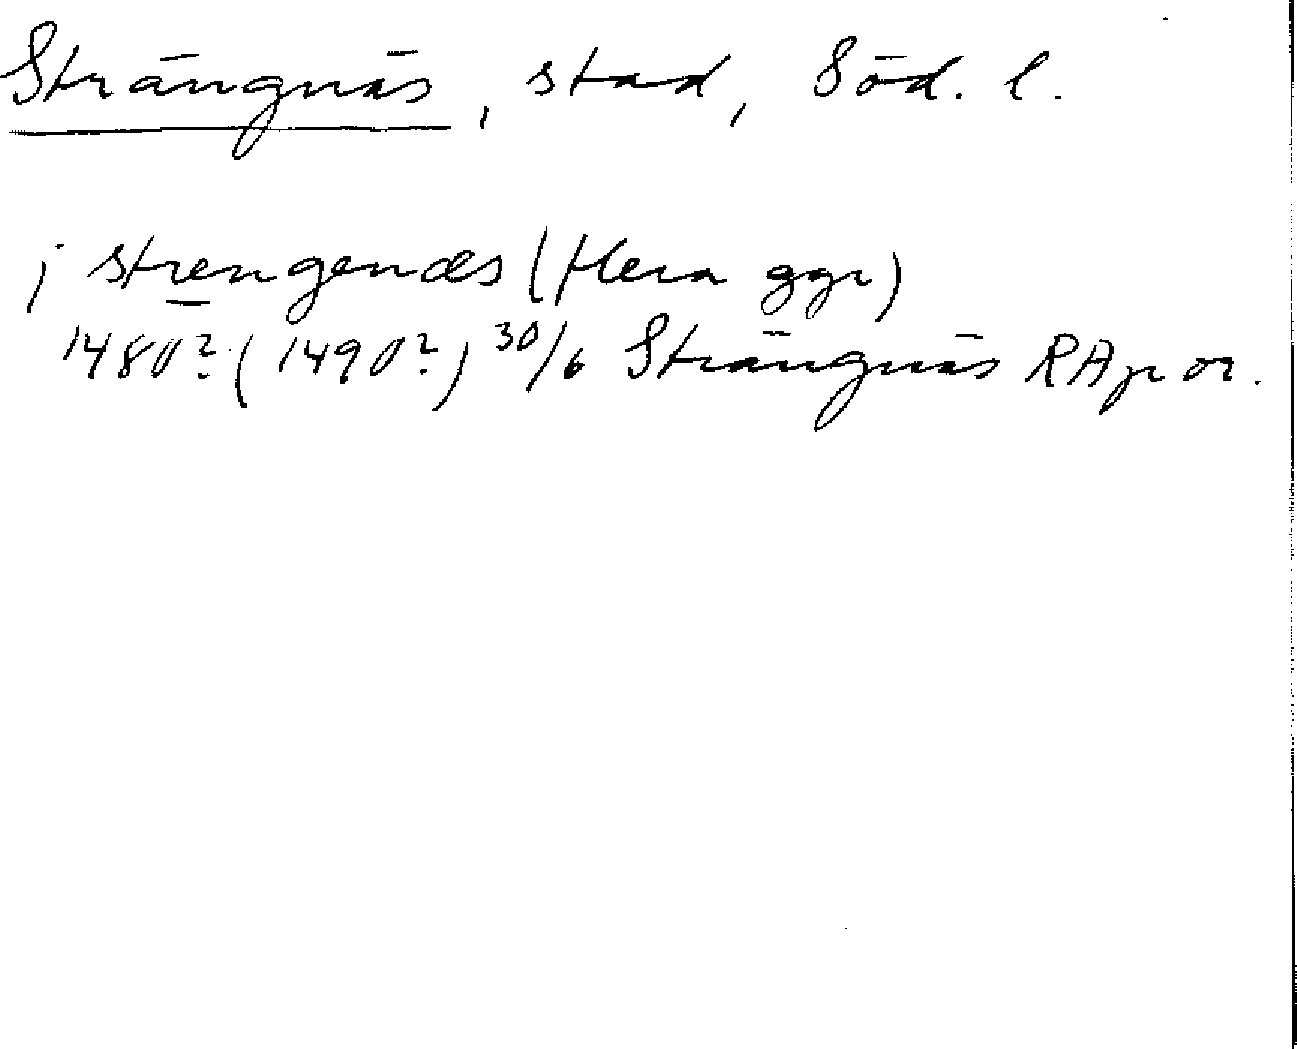 Strängnäs, stad, Söd. l.
j strengenæs (flera ggr)
1480? (1490?) 30/6 Strängnäs RAp or.